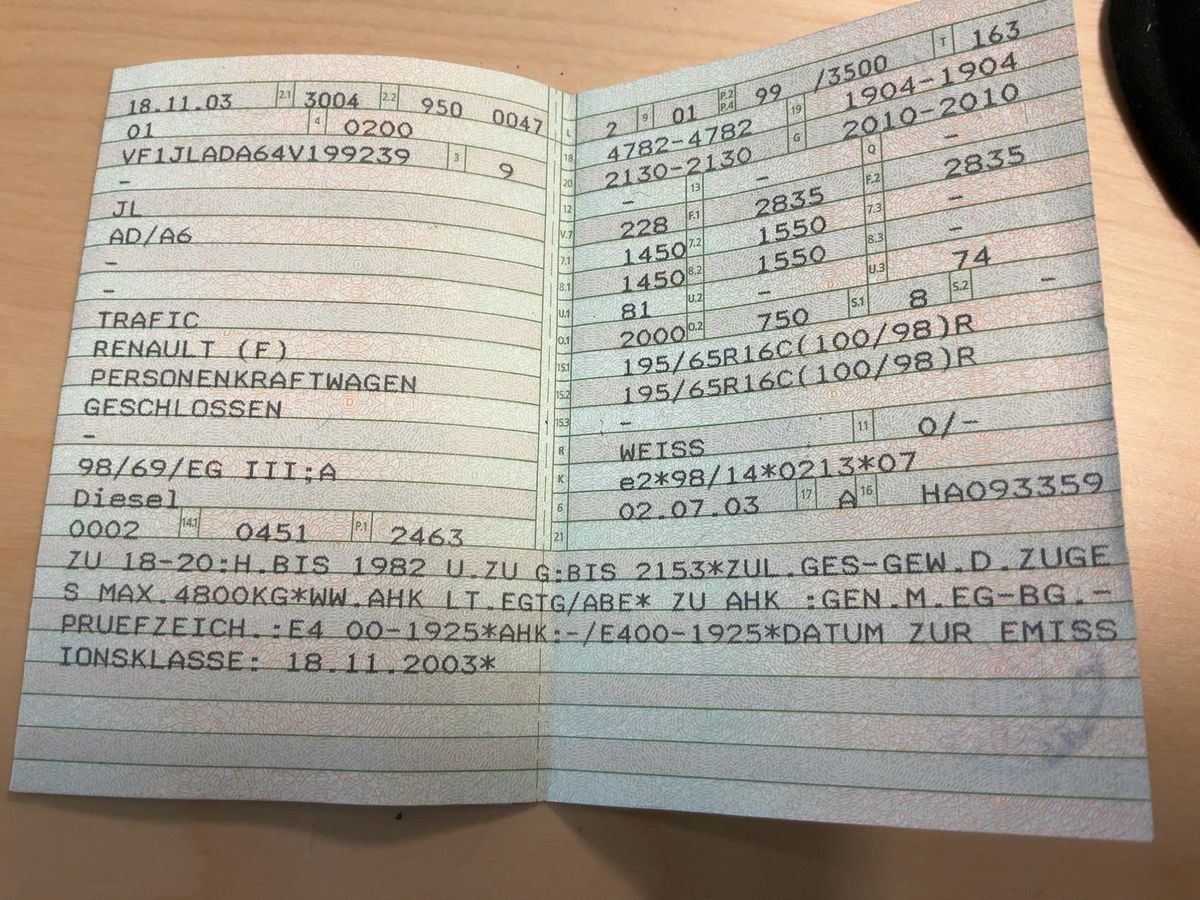 18.11.03 2.1 3004 2.2 950 0047
01 4 0200
VF1JLADA64V199239 3 9
–
JL
AD/A6
–
–
TRAFIC
RENAULT (F)
PERSONENKRAFTWAGEN
GESCHLOSSEN
–
98/69/EG III;A
Diesel
0002 14.1 0451 P.1 2463
L 2 9 01 P.2 P.4 99 /3500 T 163
18 4782-4782 19 1904-1904
20 2130-2130 G 2010-2010
12 – 13 – Q –
V.7 228 F.1 2835 F.2 2835
7.1 1450 7.2 1550 7.3 –
8.1 1450 8.2 1550 8.3 –
U.1 81 U.2 – U.3 74
O.1 2000 O.2 750 S.1 8 S.2 –
15.1 195/65R16C(100/98)R
15.2 195/65R16C(100/98)R
15.3 –
R WEISS 11 0/–
K e2*98/14*0213*07
6 02.07.03 17 A 16 HA093359
21
ZU 18-20:H.BIS 1982 U.ZU G:BIS 2153*ZUL.GES-GEW.D.ZUGE
S MAX.4800KG*WW.AHK LT.EGTG/ABE* ZU AHK :GEN.M.EG-BG.-
PRUEFZEICH.:E4 00-1925*AHK:-/E400-1925*DATUM ZUR EMISS
IONSKLASSE: 18.11.2003*
4